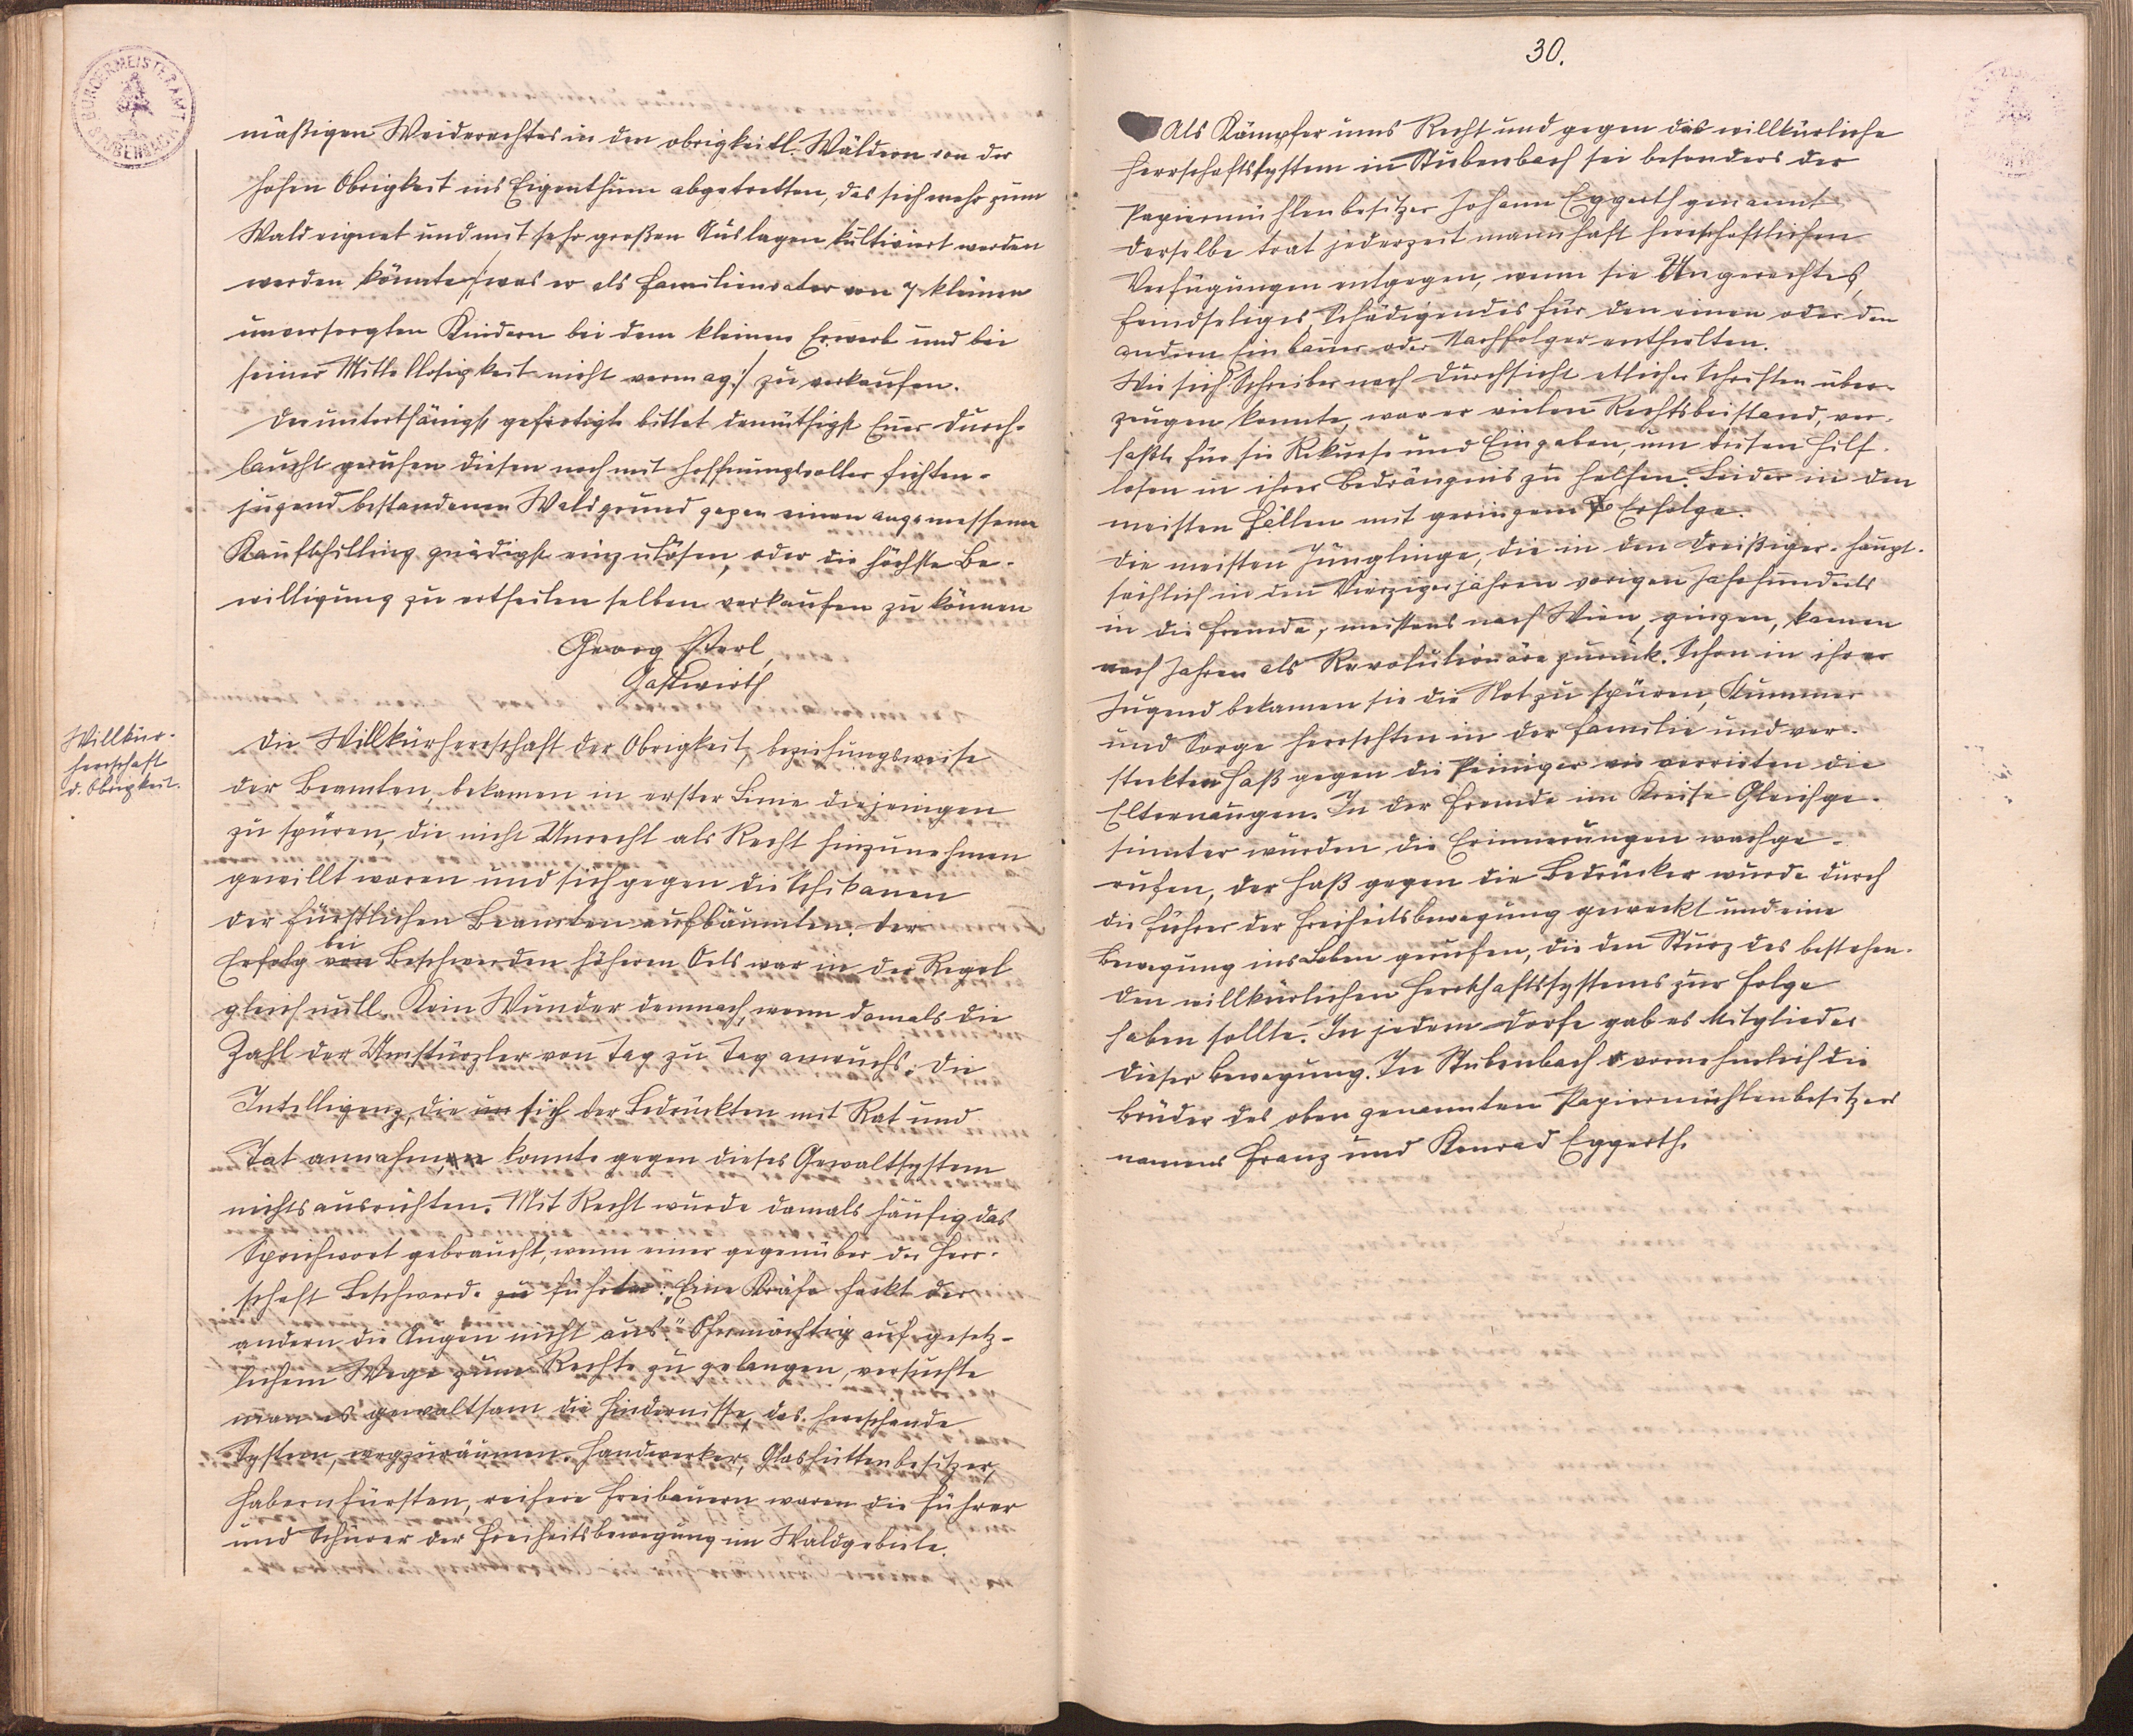 BÜRGERMEISTERAMT
STUBENBACH
mäßigen Weiderechtes in den obrigkeitl. Wäldern von der
hohen Obrigkeit ins Eigenthum abgetretten, das sich mehr zum
Wald eignet und mit sehr großen Auslagen kultiviert werden
werden könnte /:was er als Familienvater von 7 kleinen
unversorgten Kindern bei dem kleinen Erwerb und bei
seiner Mittellosigkeit nicht vermag:/ zu verkaufen.
Der unterthänigst gefertigte bittet demüthigst Euer Durch-
laucht geruhen diesen noch mit hoffnungsvoller Fichten-
jugend bestandenen Waldgrund gegen einen angemessenen
Kaufschilling gnädigst einzulösen, oder die höchste Be-
willigung zu ertheilen selben verkaufen zu können
Georg Sterl,
Gastwirth
Willkür-
herrschaft
d. Obrigkeit.
Die Willkürherrschaft der Obrigkeit, beziehungsweise
der Beamten, bekamen in erster Linie diejenigen
zu spüren, die nicht Unrecht als Recht hinzunehmen
gewillt waren und sich gegen die Schikanen
der fürstlichen Beamten aufbäumten. Der
bei
Erfolg von Beschwerden höheren Orts war in der Regel
gleich null. Kein Wunder demnach, wenn damals die
Zahl der Umstürzler von Tag zu Tag anwuchs. Die
Intelligenz, die um sich der Bedrückten mit Rat und
Tat annahm, konnte gegen dieses Gewaltsystem
nichts ausrichten. Mit Recht wurde damals häufig das
Sprichwort gebraucht, wenn einer gegenüber der Herr-
schaft Beschwerde zu führte: „Eine Krähe hackt der
andern die Augen nicht aus." Ohnmächtig auf gesetz-
lichem Wege zum Rechte zu gelangen, versuchte
man es gewaltsam die Hindernisse, das herrschende
System, wegzuräumen. Handwerker, Glashüttenbesitzer,
Habernfürsten, reichere Freibauern waren die Führer
und Schürer der Freiheitsbewegung im Waldgebiete.
30.
Als Kämpfer ums Recht und gegen das willkürliche
Herrschaftssystem in Stubenbach sei besonders der
Papiermühlenbesitzer Johann Eggerth genannt
Derselbe trat jederzeit mannhaft herrschaftlichen
Verfügungen entgegen, wenn sie Ungerechtes,
Feindseliges, Schädigendes für den einen oder den
andern Einbauer oder Nachfolger enthielten.
Wie sich Schreiber nach Durchsicht etlicher Schriften über-
zeugen konnte, war er vielen Rechtsbeistand, ver-
faßte für sie Rekurse und Eingaben, um diesen Hilf-
losen in ihrer Bedrängnis zu helfen. Leider in den
meisten Fällen mit geringem Erfolge.
Die meisten Jünglinge, die in den Dreißiger- haupt-
sächlich in den Vierzigerjahren vorigen Jahrhunderts
in die Fremde, meistens nach Wien, gingen, kamen
nach Jahren als Revolutionäre zurück. Schon in ihrer
Jugend bekamen sie die Not zu spüren, Kummer
und Sorge herrschten in der Familie und ver-
steckten Haß gegen die Peiniger verrieten die
Elternaugen. In der Fremde im Kreise Gleichge-
sinnter wurden die Erinnerungen wachge-
rufen, der Haß gegen die Bedrücker wurde durch
die Führer der Freiheitsbewegung geweckt und eine
Bewegung ins Leben gerufen, die den Sturz des bestehen-
den willkürlichen Herrschaftssystems zur Folge
haben sollte. In jedem Dorfe gab es Mitglieder
dieser Bewegung. In Stubenbach vornehmlich die
Brüder des oben genannten Papiermühlenbesitzers
namens Franz und Konrad Eggerth.